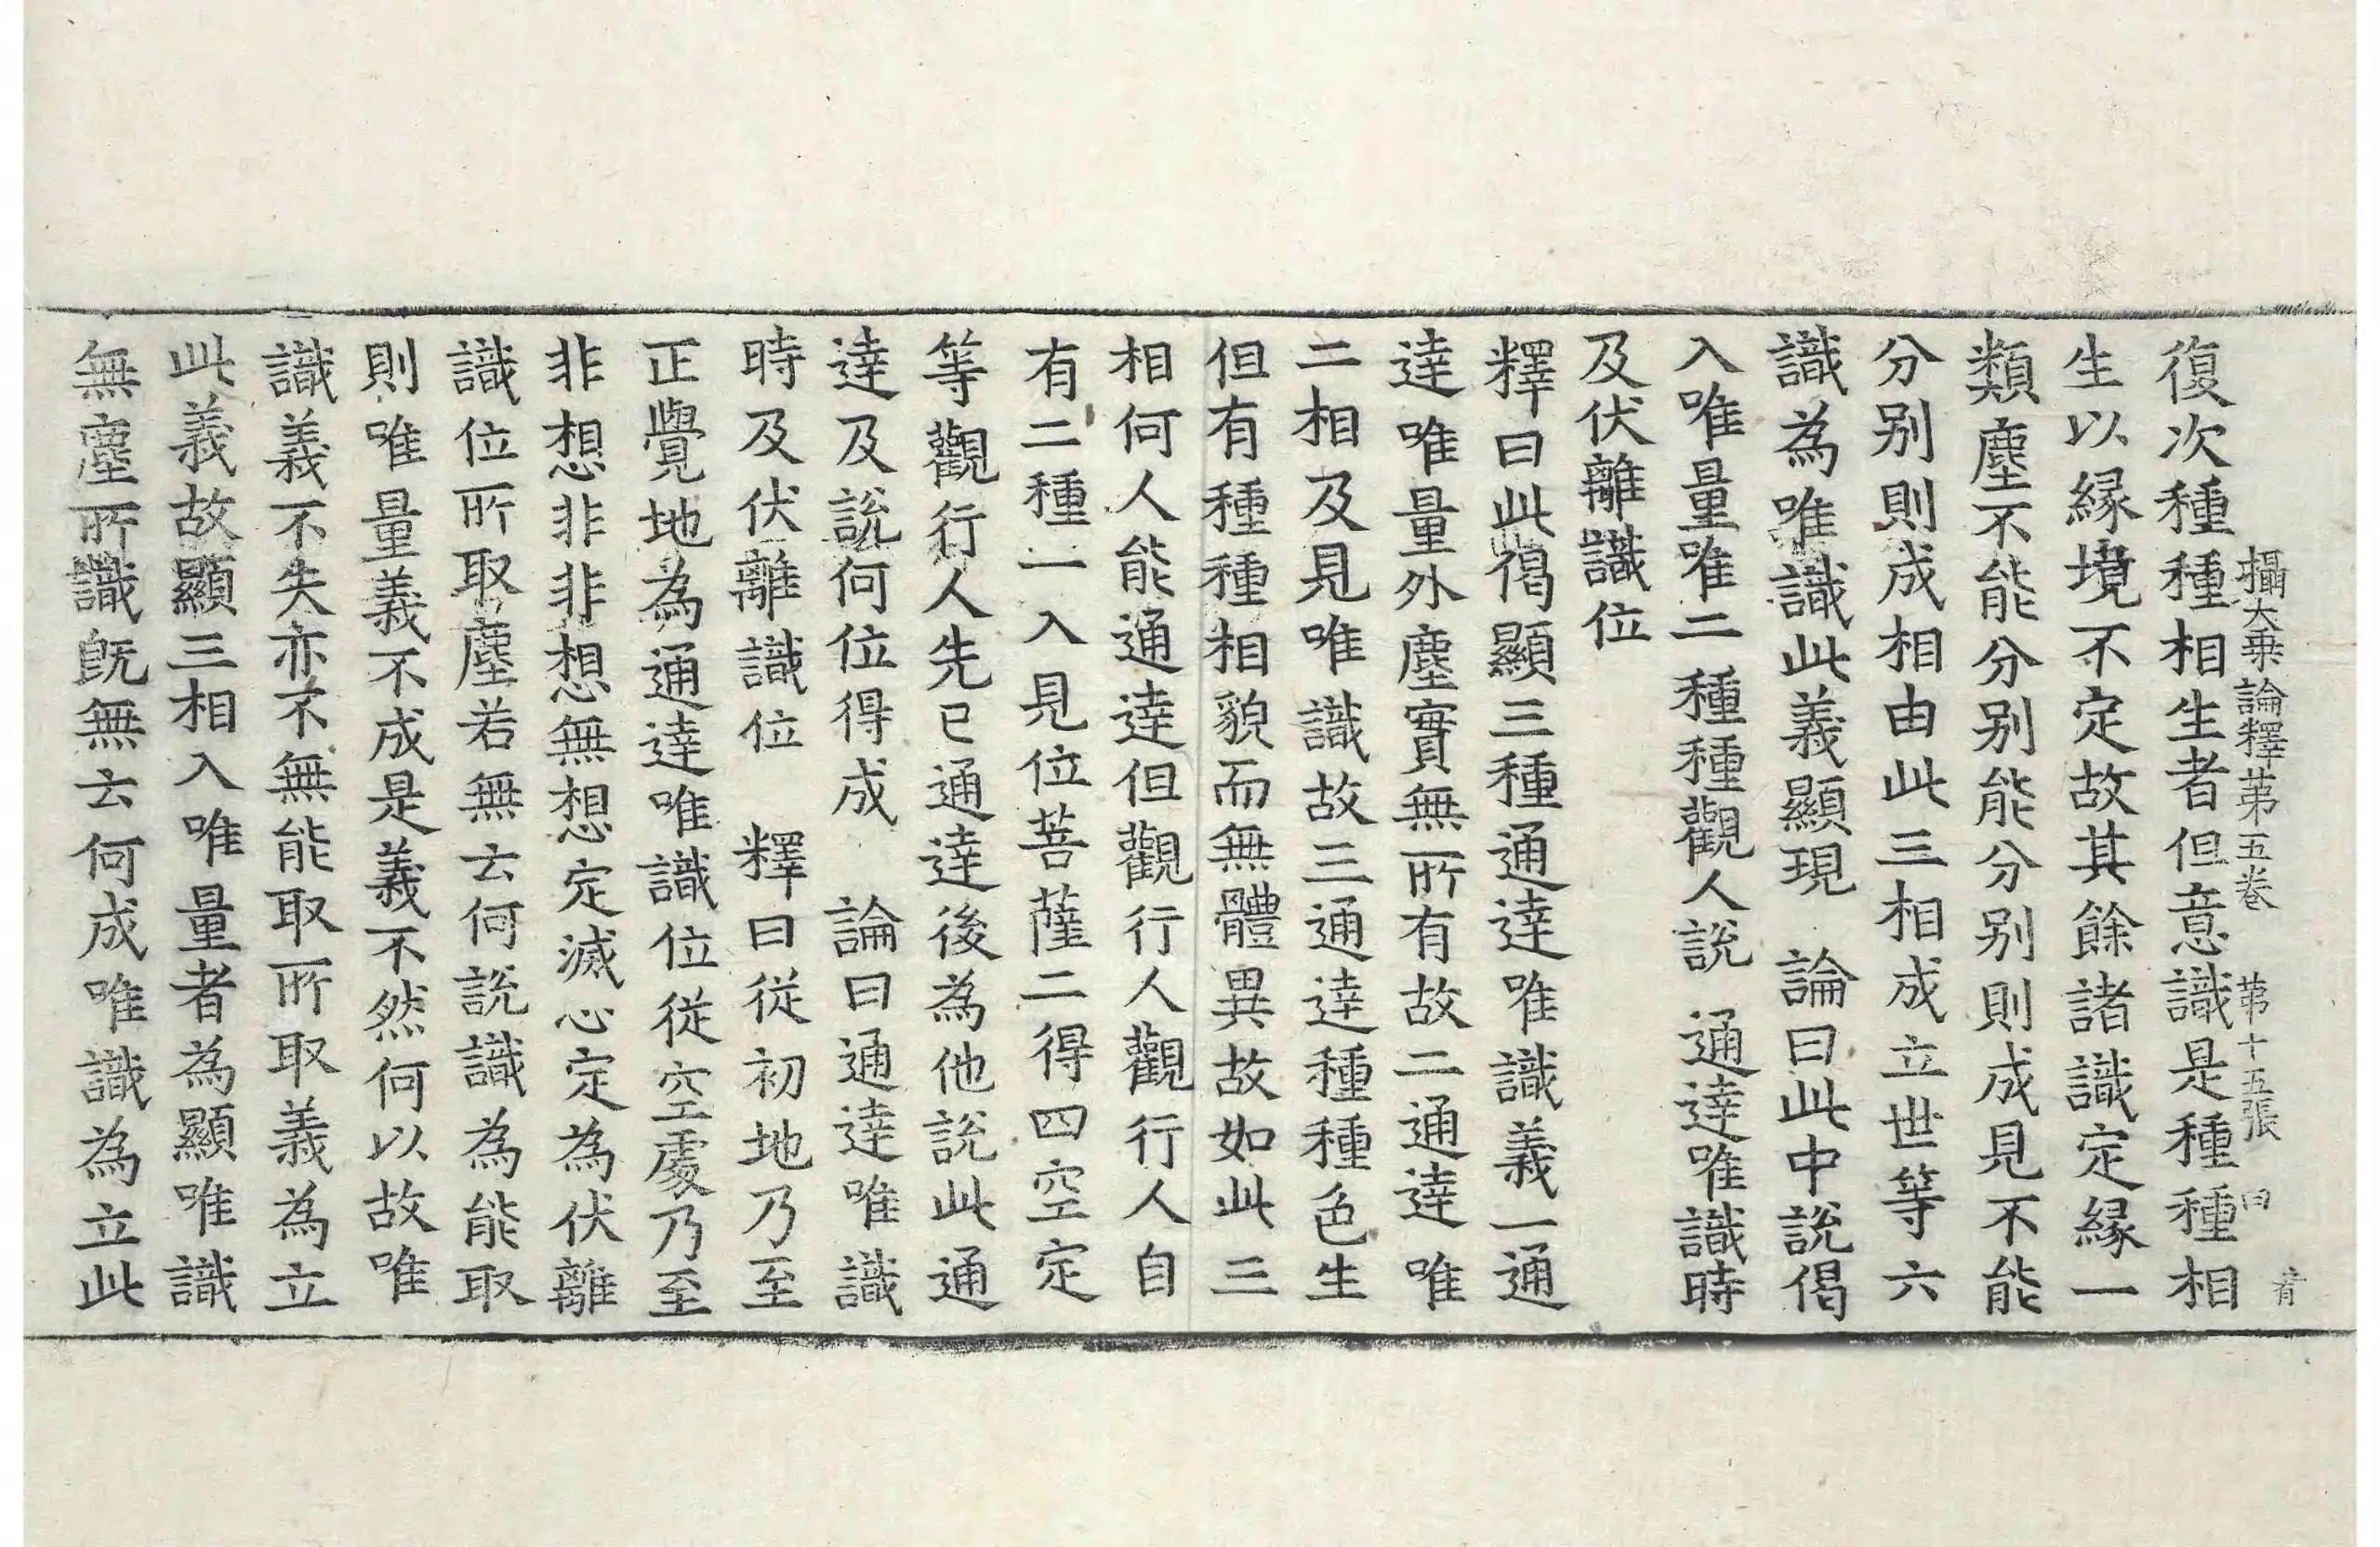 攝大乗論釋苐五卷 苐十五張 曰
復次種種相生者但意識是種種相
生以緣境不定故其餘諸識定緣一
類塵不能分别能分别則成見不能
分别則成相由此三相成立世等六
識為唯識此義顯現 論曰此中說偈
入唯量唯二 種種觀人說 通達唯識時
及伏離識位
釋曰此偈顯三種通達唯識義一通
達唯量外塵實無所有故二通達唯
二相及見唯識故三通達種種色生
但有種種相貌而無體異故如此三
相何人能通達但觀行人觀行人自
有二種一入見位菩薩二得四空定
等觀行人先已通達後為他說此通
達及說何位得成 論曰通達唯識
時及伏離識位 釋曰從初地乃至
正覺地為通達唯識位從空處乃至
非想非非想無想定滅心定為伏離
識位所取塵若無云何說識為能取
則唯量義不成是義不然何以故唯
識義不失亦不無能取所取義為立
此義故顯三相入唯量者為顯唯識
無塵所識旣無云何成唯識為立此